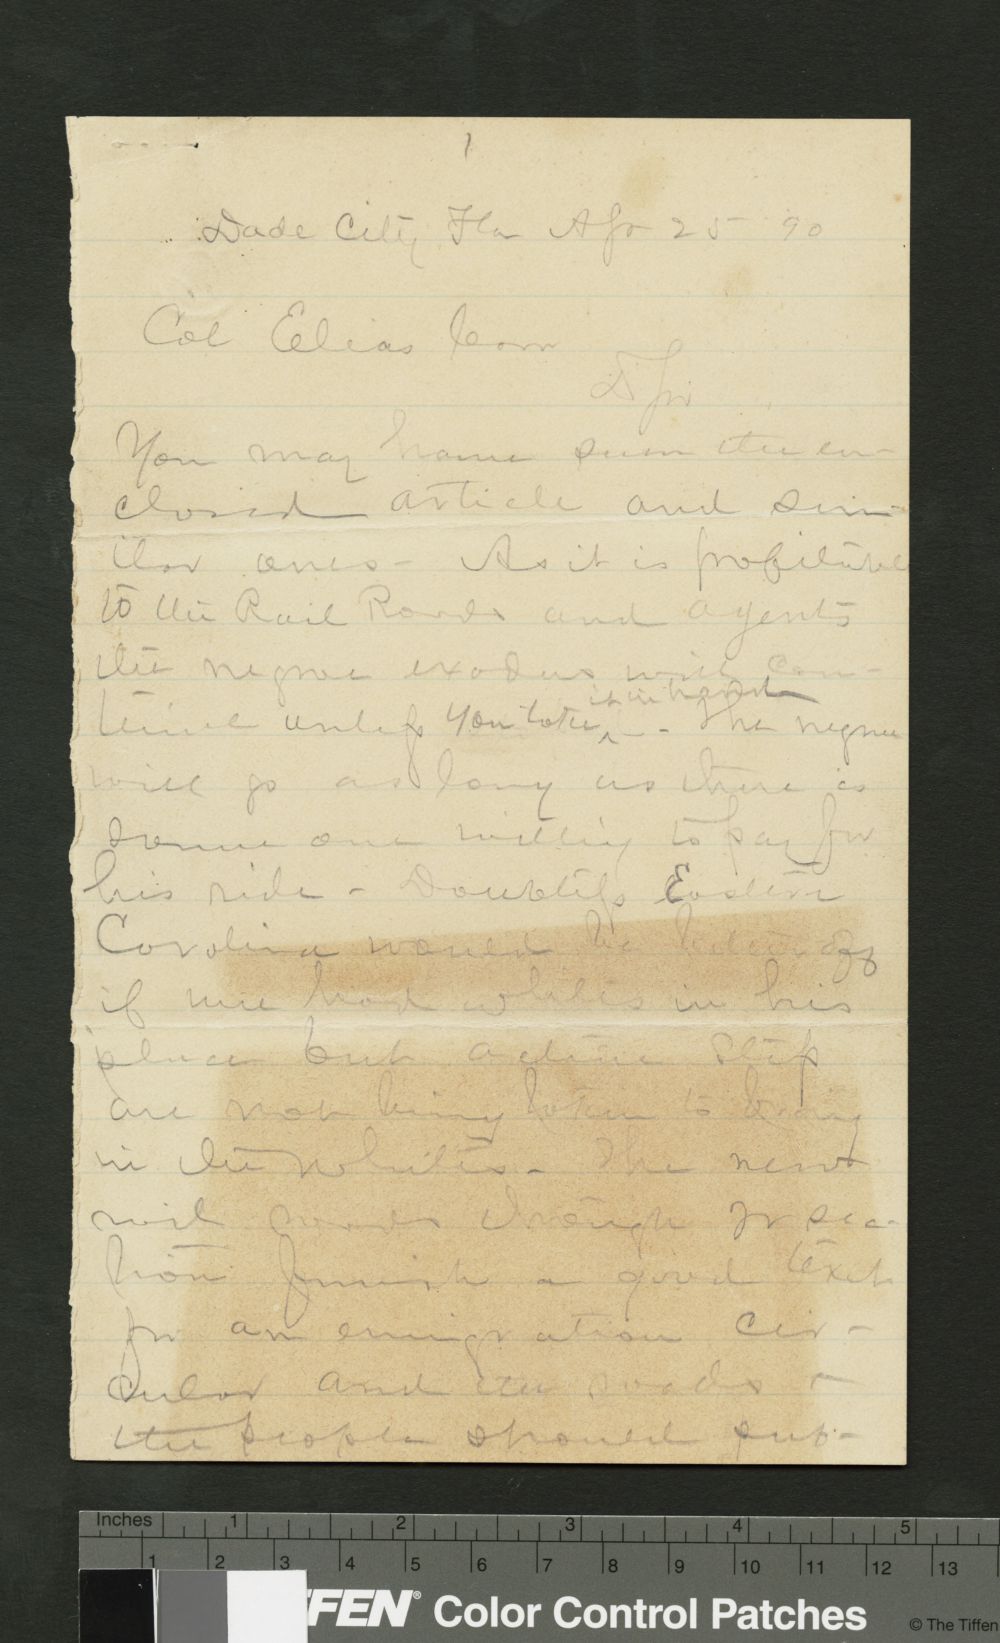 1
Dade City Fla Apr 25 90
Col Elias Carr
D Sir
You may have seen the en-
closed article and sim-
ilar ones - As it is profitable
to the Rail Roads and agents
the negroe exodus will con-
tinue unless you take it in hand - The negroe
will go as long as there is
some one willing to pay for
his ride - Doubtless Eastern
Carolina would be better off
if we had whites in his
place but active step
are not being taken to bring
in the whites - The new
rail roads through yr sec-
tion furnish a good text
for an emigration cir-
cular and the roads &
the people should pub-
Inches 1 2 3 4 5
1 2 3 4 5 6 7 8 9 10 11 12 13
FFEN® Color Control Patches © The Tiffen